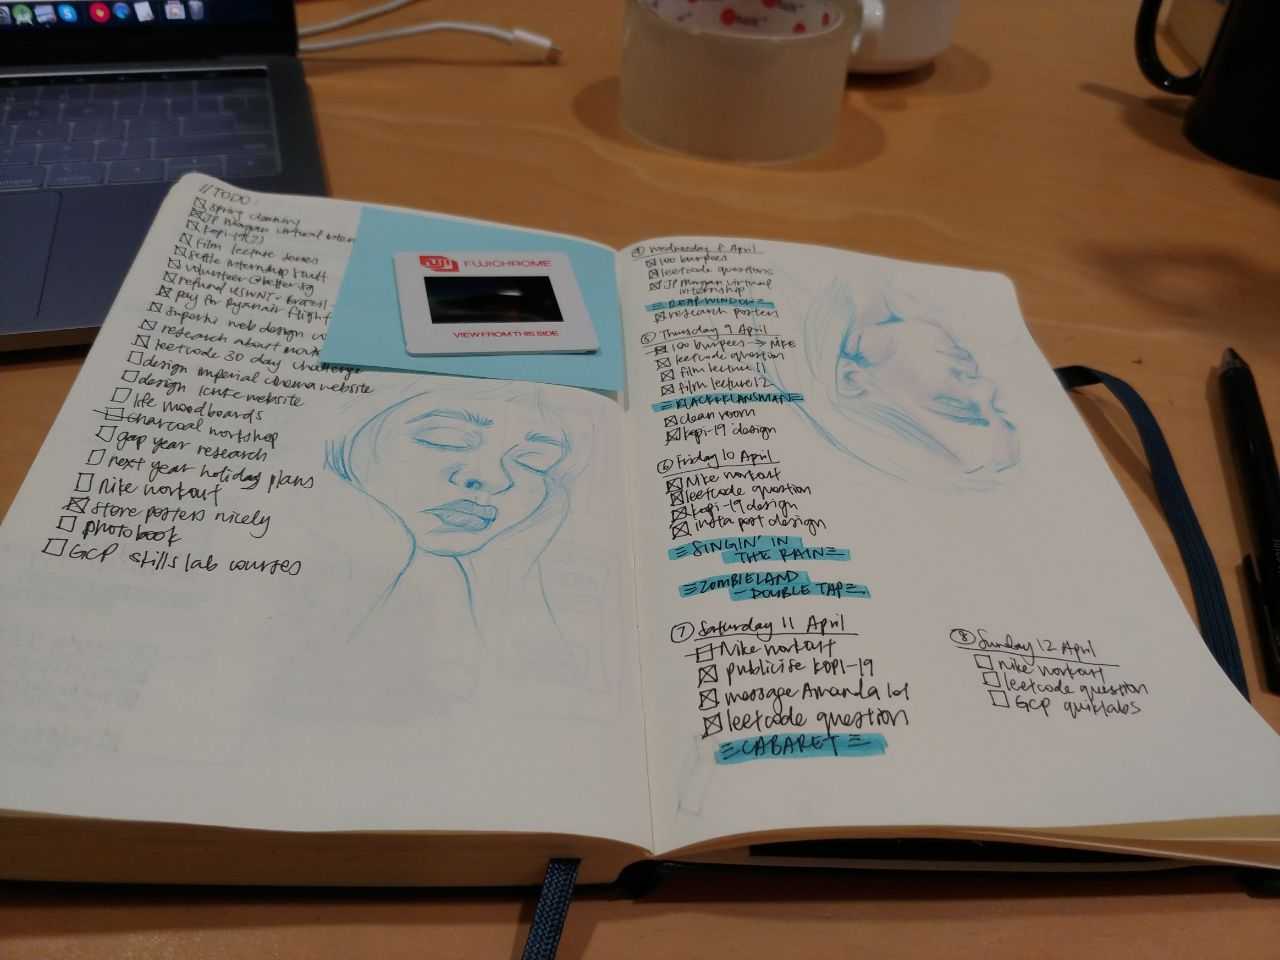 // TODO:
Spring cleaning
JP Morgan virtual intern
kopi-19(2)
film lecture series
settle internship stuff
volunteer @better.sg
refund USWNT - Brazil
pay for Ryanair flight
superhi web design
research about
leetcode 30 day challenge
design imperial cinema website
design ICNKE website
life moodboards
charcoal workshop
gap year research
next year holiday plans
Nike workout
store posters nicely
photobook
GCP skills lab courses
FUJI FUJICHROME
VIEW FROM THIS SIDE
4 Wednesday 8 April
100 burpees
leetcode questions
JP Morgan virtual
internship
REAR WINDOW
research posters
5 Thursday 9 April
100 burpees → NIKE
leetcode question
film lecture 11
film lecture 12
BLACKKKLANSMAN
clean room
kopi-19 design
6 Friday 10 April
Nike workout
leetcode question
kopi-19 design
insta post design
SINGIN' IN
THE RAIN
ZOMBIELAND
- DOUBLE TAP
7 Saturday 11 April
Nike workout
publicise KOPI-19
message Amanda lol
leetcode question
CABARET
8 Sunday 12 April
nike workout
leetcode question
GCP quiklabs